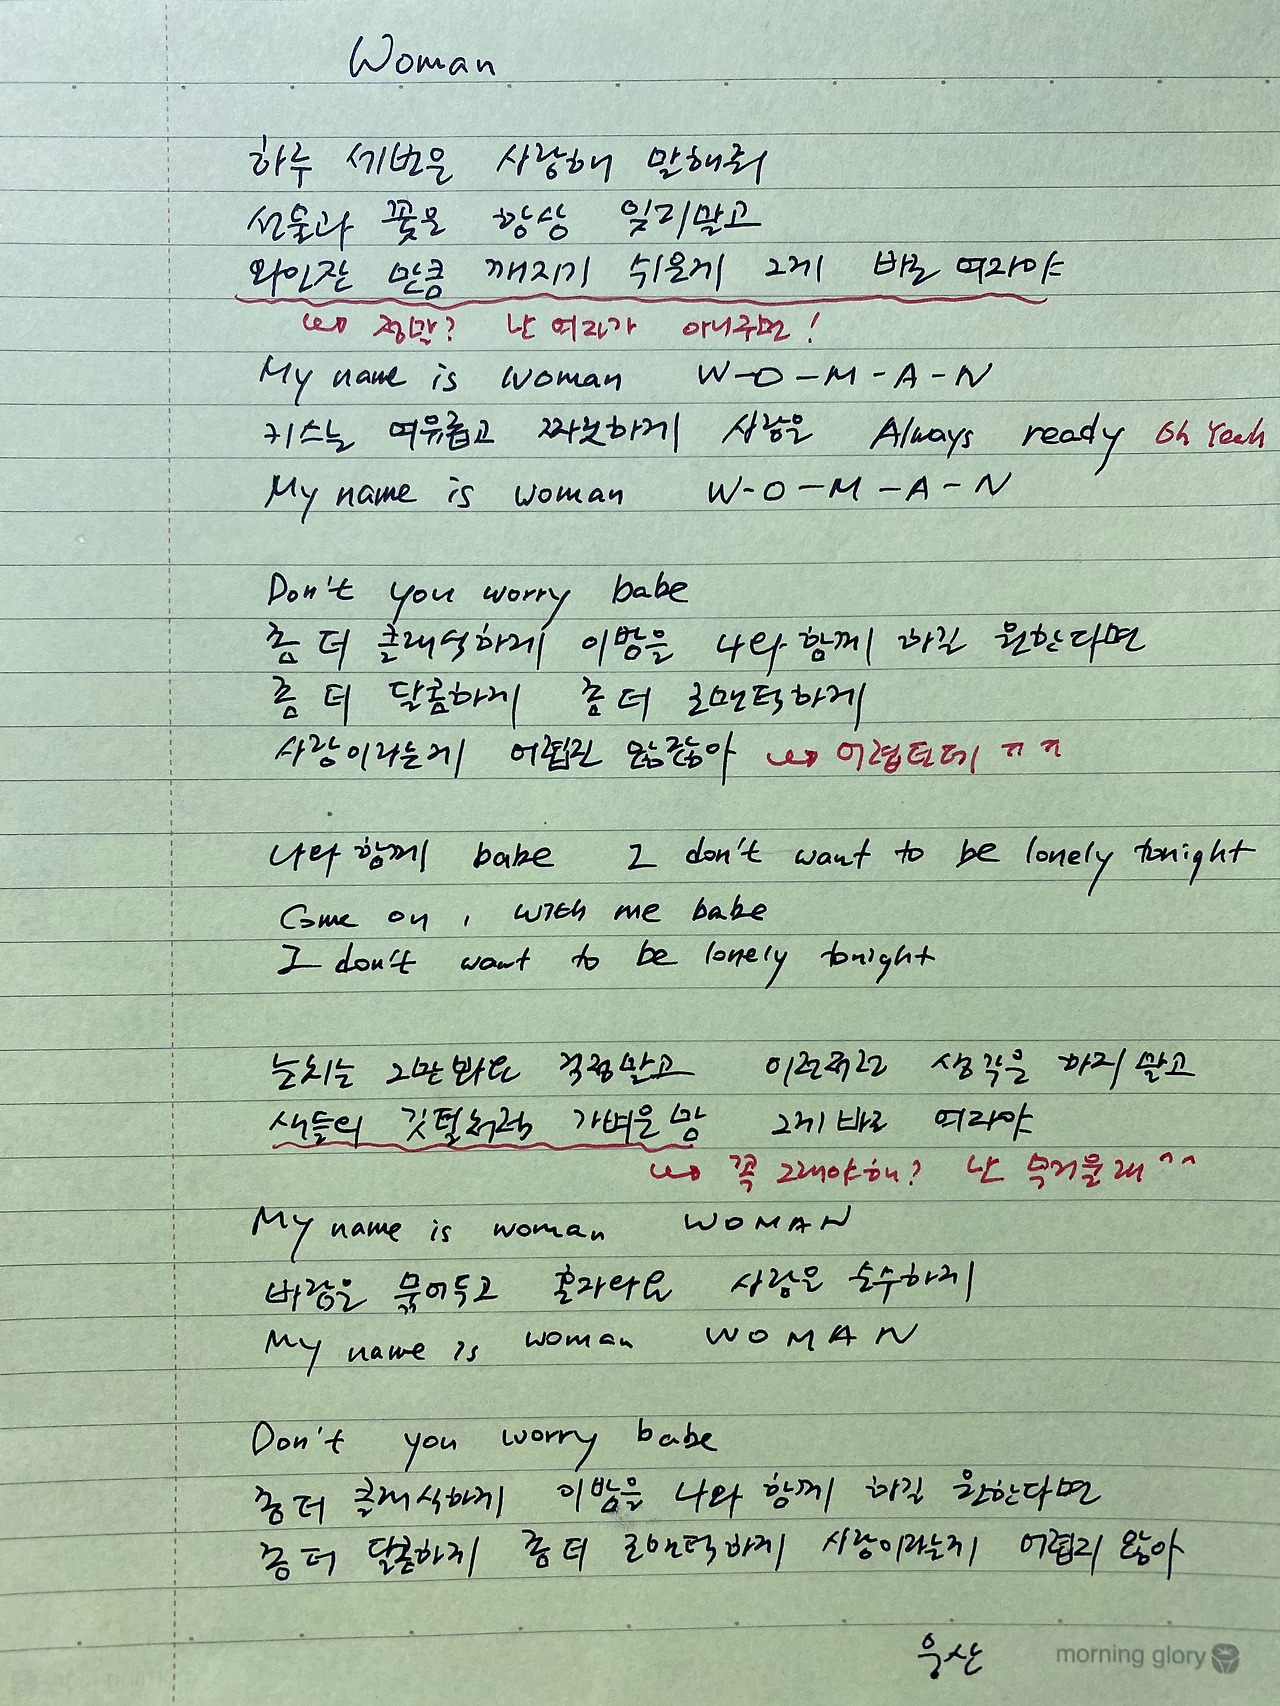 Woman
하루 세번은 사랑해 말해줘
선물과 꽃은 항상 잊지말고
와인잔 만큼 깨지기 쉬운게 그게 바로 여자야
↪ 정말? 난 여자가 아니구먼!
My name is woman W-O-M-A-N
키스는 여유롭고 짜릿하게 사랑은 Always ready Oh Yeah
My name is woman W-O-M-A-N
Don't you worry babe
좀 더 클래식하게 이밤을 나와 함께 하길 원한다면
좀 더 달콤하게 좀 더 로맨틱하게
사랑이라는게 어렵진 않잖아 ↪ 어렵던데 ㅠㅠ
나와 함께 babe I don't want to be lonely tonight
Come on, with me babe
I don't want to be lonely tonight
눈치는 그만 봐요 걱정말고 이런저런 생각은 하지 말고
새들의 깃털처럼 가벼운 맘 그게 바로 여자야
↪ 꼭 그래야 해? 난 무거울래 ^^
My name is woman WOMAN
바람은 묶어두고 혼자와요 사랑은 순수하게
My name is woman WOMAN
Don't you worry babe
좀 더 클래식하게 이밤을 나와 함께 하길 원한다면
좀 더 달콤하게 좀 더 로맨틱하게 사랑이라는게 어렵지 않아
우산 morning glory